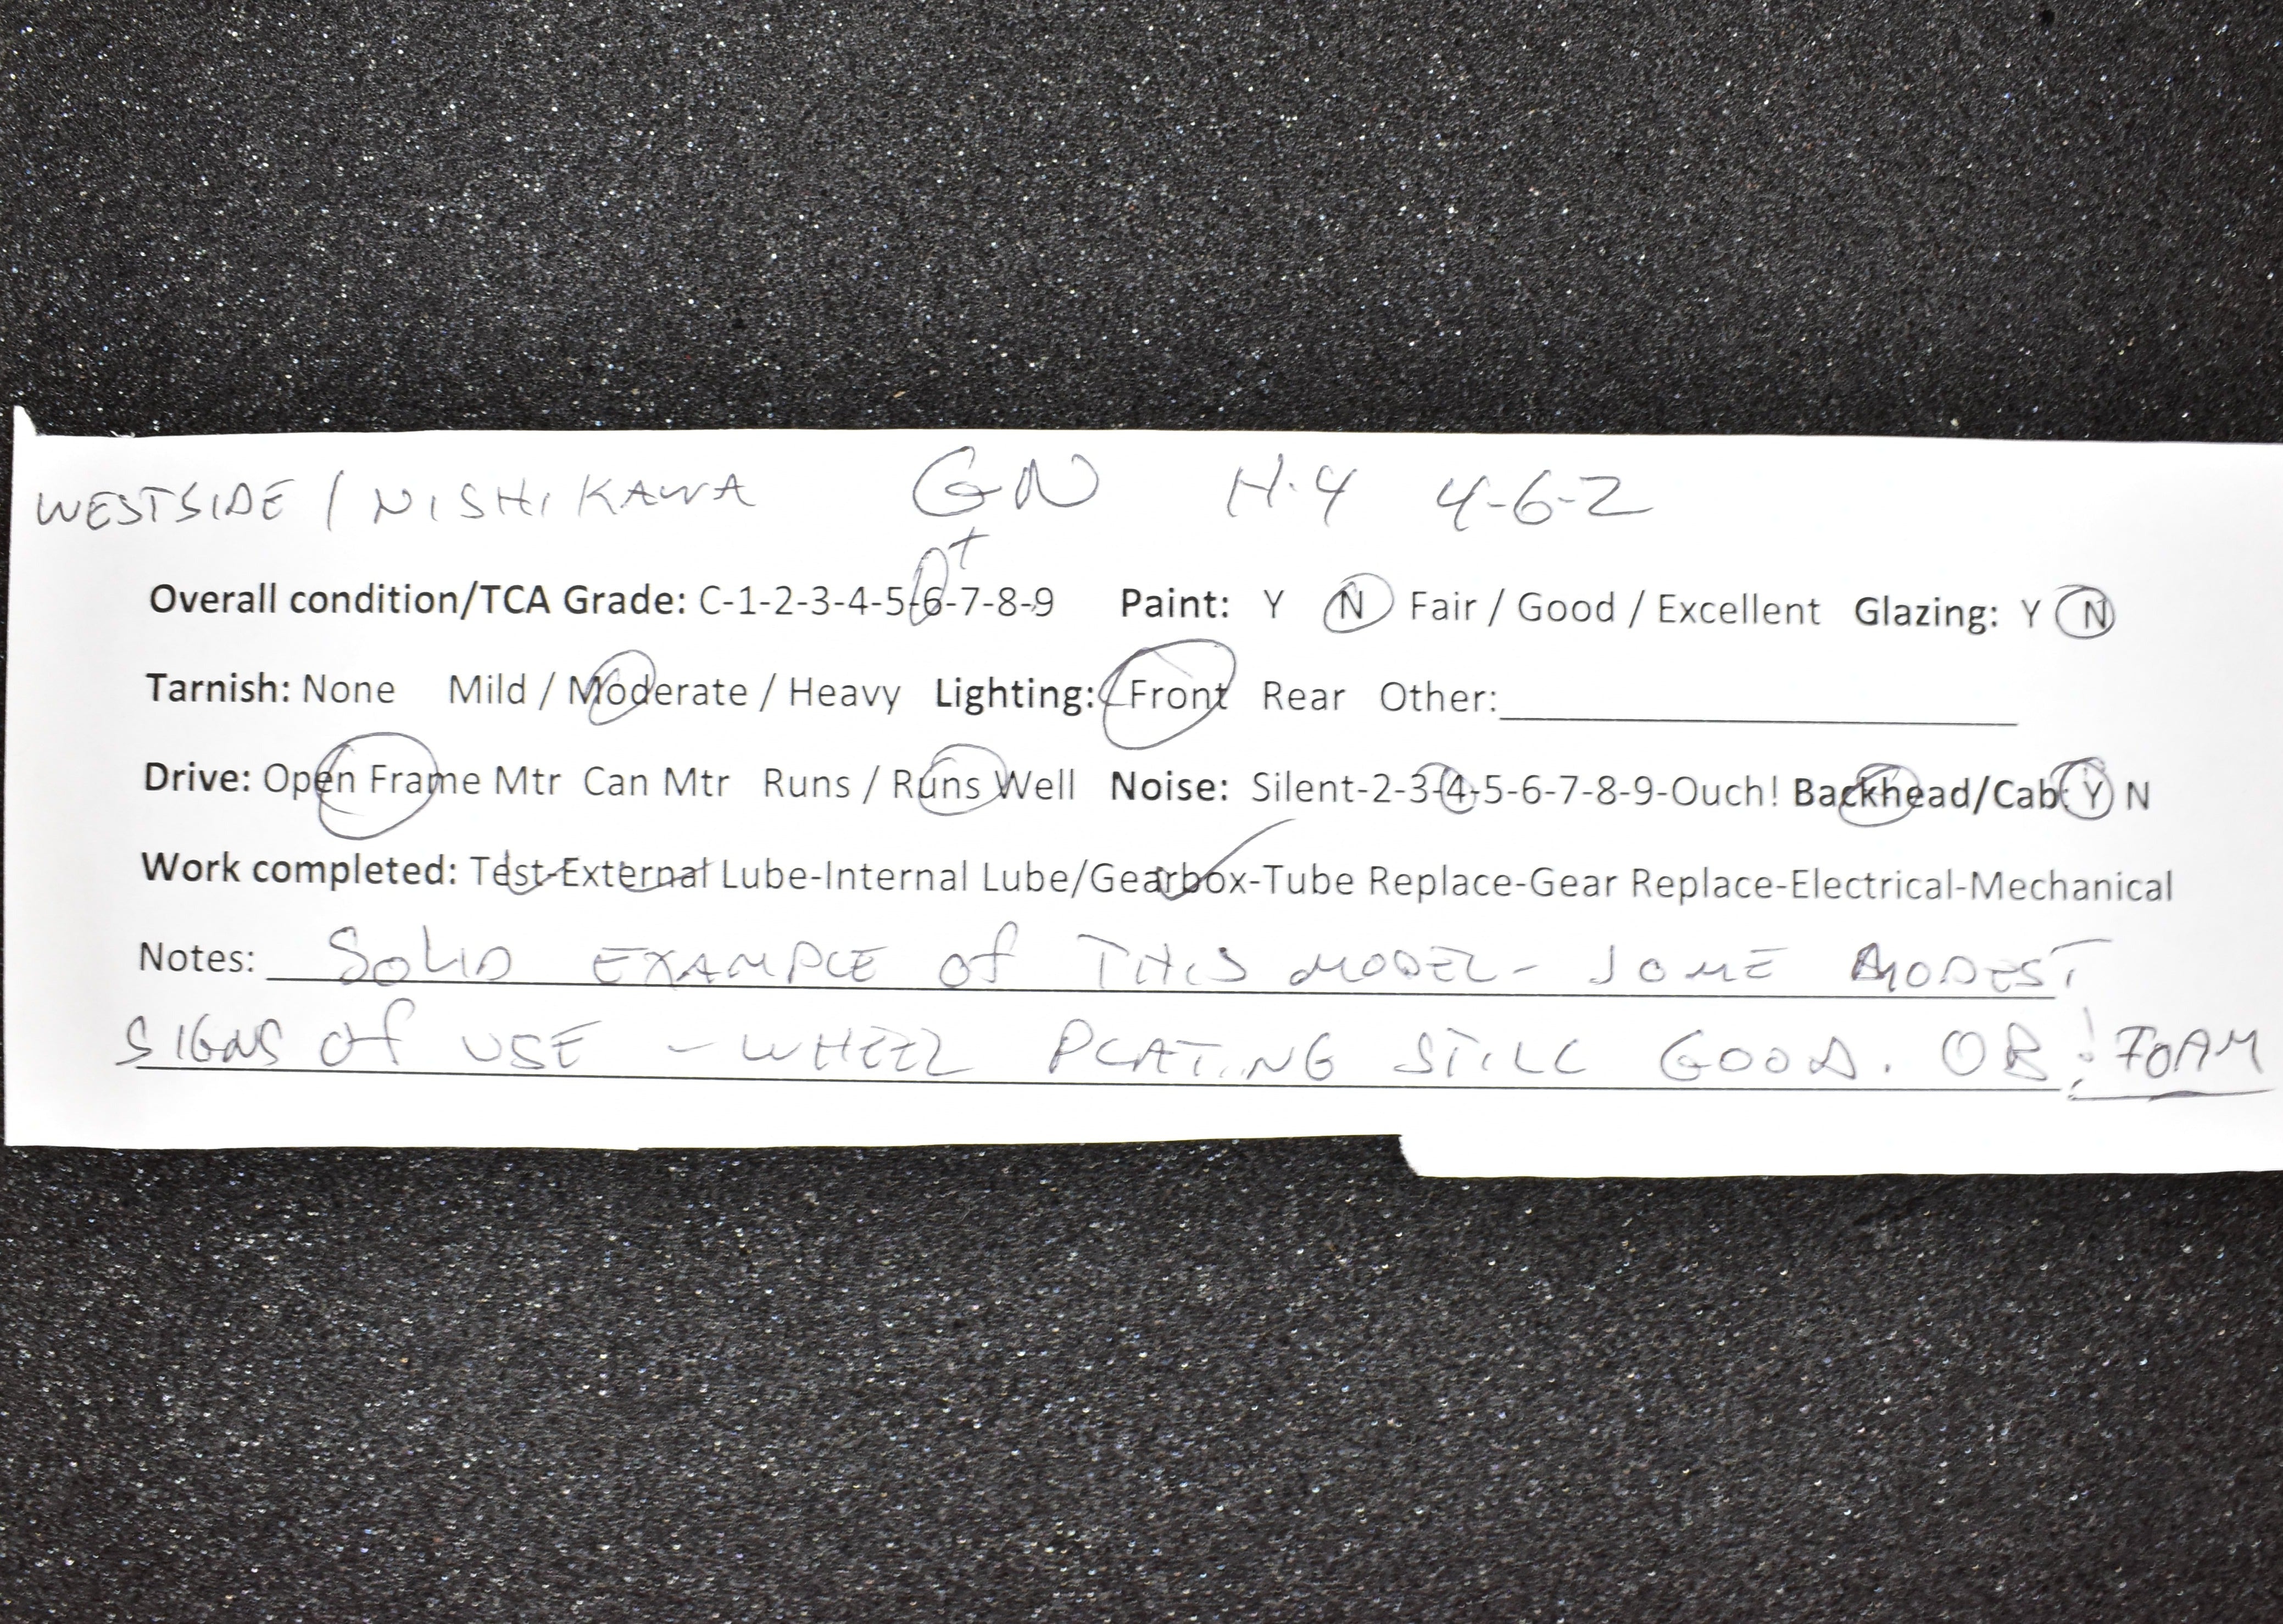 WESTSIDE / NISHIKAWA GN H-4 4-6-2
Overall condition/TCA Grade: C-1-2-3-4-5-6-7-8-9 + Paint: Y N Fair / Good / Excellent Glazing: Y N
Tarnish: None Mild / Moderate / Heavy Lighting: Front Rear Other:
Drive: Open Frame Mtr Can Mtr Runs / Runs Well Noise: Silent-2-3-4-5-6-7-8-9-Ouch! Backhead/Cab: Y N
Work completed: Test-External Lube-Internal Lube/Gearbox-Tube Replace-Gear Replace-Electrical-Mechanical
Notes: SOLID EXAMPLE Of THIS MODEL - SOME MODEST
SIGNS Of USE - WHEEL PLATING STILL GOOD. OB: FOAM